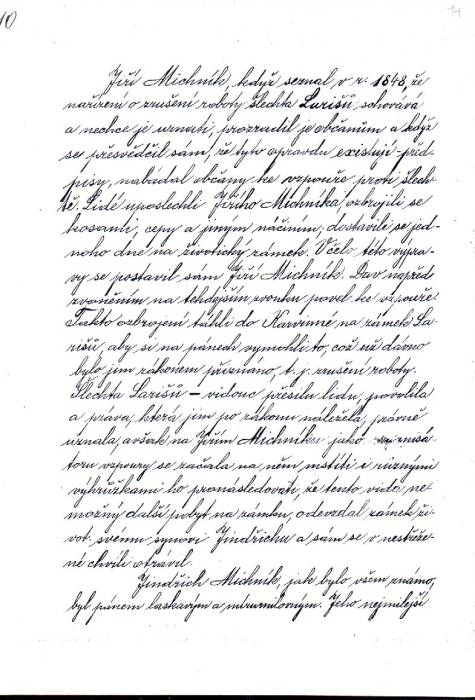 10
14
Jiří Michník, když seznal, v r. 1848, že
nařízení o zrušení roboty šlechta Larišů, schovává
a nechce je uznati, prozradil je občanům a když
se přesvědčil sám, že tyto opravdu existují před-
pisy, nabádal občany ke vzpouře proti šlech-
tě. Lidé uposlechli Jiřího Michníka, ozbrojili se
kosami, cepy a jiným náčiním, dostavili se jed-
noho dne na životický zámek. V čelo této výpra-
vy se postavil sám Jiří Michník. Dav napřed
zvoněním na tehdejším zvonku povel ke vzpouře
Takto ozbrojeni táhli do Karvinné na zámek La-
rišů, aby si na pánech vymohli to, což už dávno
bylo jim zákonem přiznáno, t. j. zrušení roboty.
Šlechta Larišů – vidouc přesilu lidu, povolila
a práva, která jim po zákonu náležela, právně
uznala, avšak na Jiřím Michníku jako
toru vzpoury se začala na něm mstíti i různými
výhrůžkami ho pronásledovati, že tento vida ne-
možný další pobyt na zámku, odevzdal zámek ži-
vot. svému synovi Jindřichu a sám se v nestřeže-
né chvíli otrávil.
Jindřich Michník, jak bylo všem známo,
byl pánem laskavým a mírumilovným. Jeho nejmilejší